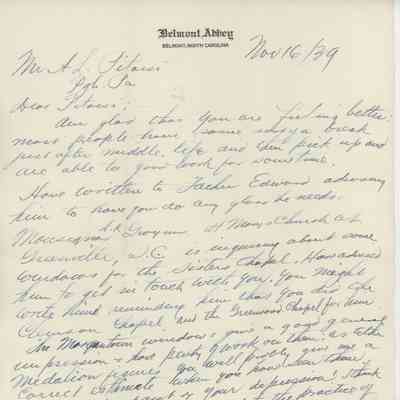 Belmont Abbey
BELMONT, NORTH CAROLINA
Nov 16/39
Mr A L. Pitassi
Pgh. Pa
Dear Pitassi;
Am glad that you are feeling better.
most people have some such a break
just after middle life and then pick up and
are able to your work for some time.
Have written to Father Edward advising
him to have you do any glass he needs.
Monseignor of Mary's Church at
Greenville, S.C. is inquiring about some
windows for the Sisters Chapel. Have advised
him to get in touch with you. You might
write him reminding him that you did the
Clemson Chapel and the Greenwood Chapel for him
The Morgantown windows give a good general
impression
medalion figures you will give me a
correct estimate when you have
of your depression! I think
the practice of